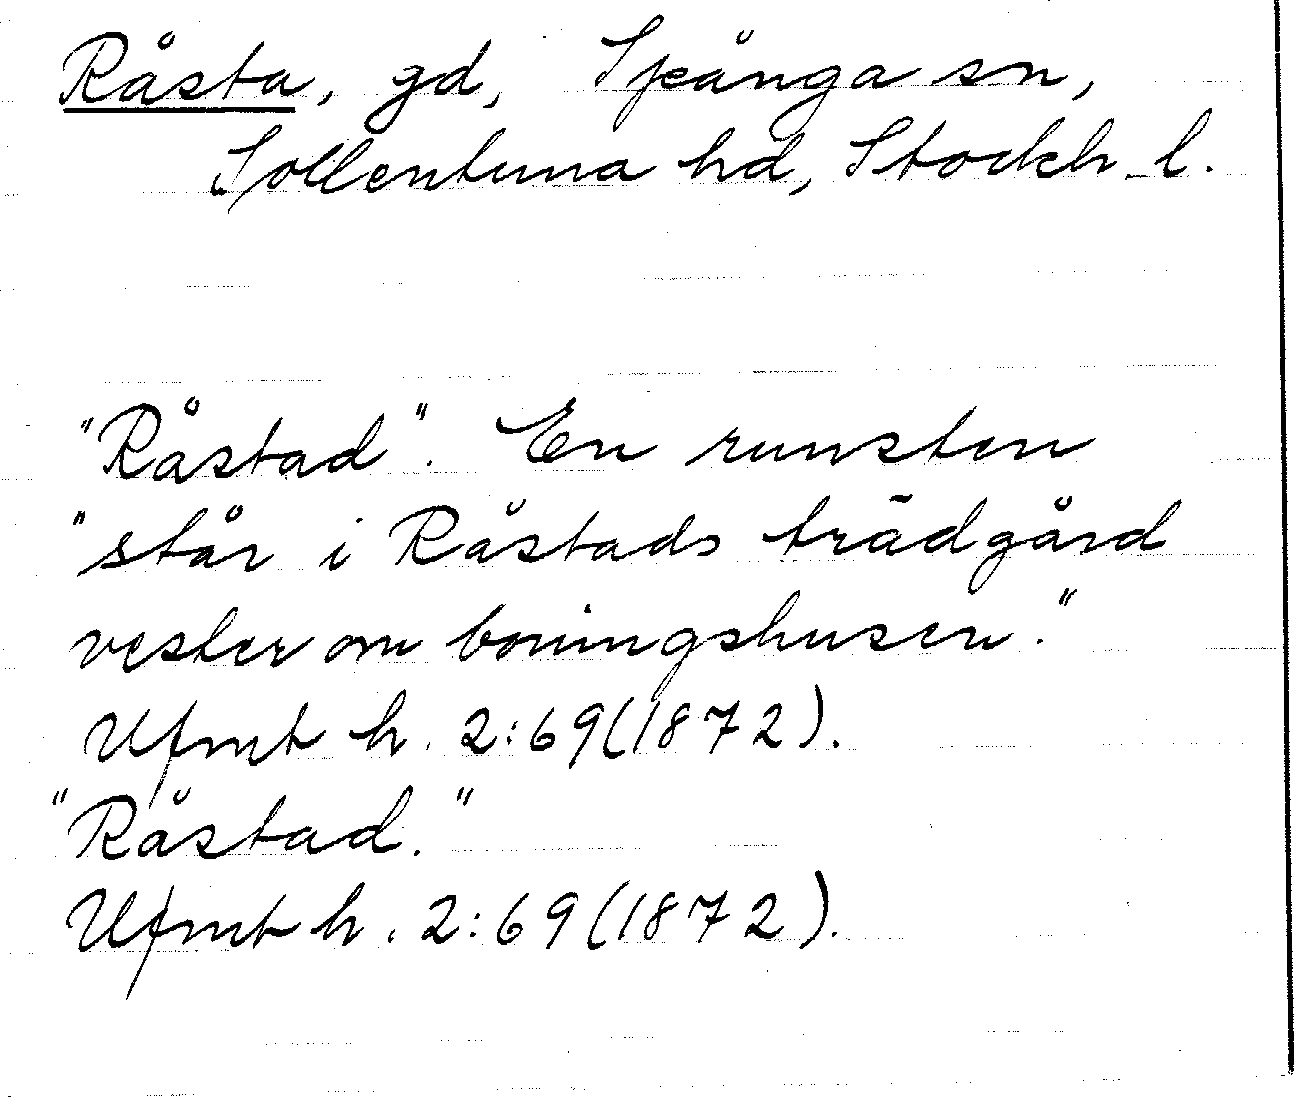 Råsta, gd, Spånga sn,
Sollentuna hd, Stockh. l.
"Råstad". En runsten
"står i Råstads trädgård
vester om boningshusen."
Ufmt h. 2:69(1872).
"Råstad."
Ufmt h. 2:69(1872).